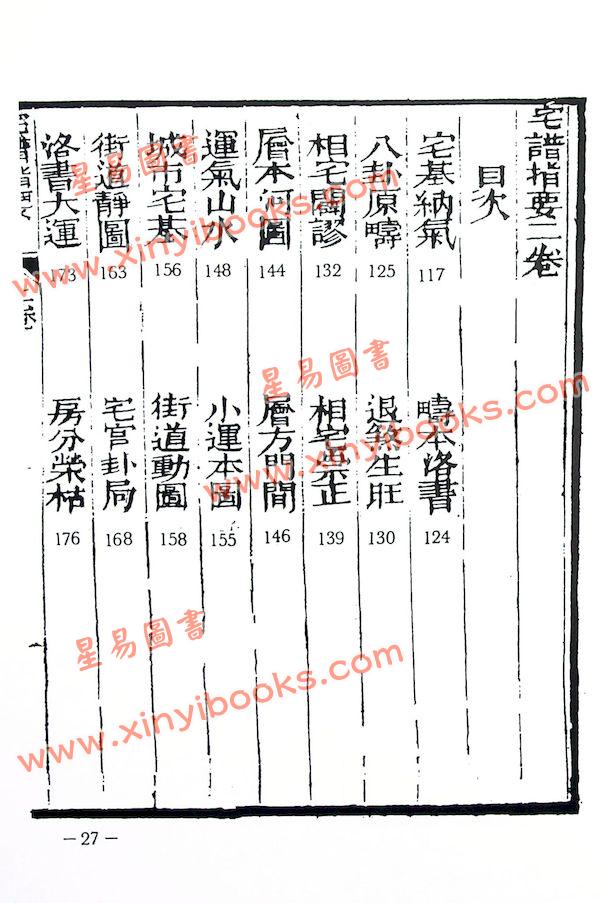 宅譜指要二卷
目次
宅基納氣 117 疇本洛書 124
八卦原疇 125 退煞生旺 130
相宅闢謬 132 相宅崇正 139
層本河圖 144 層方門間 146
運氣山水 148 小運本圖 155
城市宅基 156 街道動圖 158
街道靜圖 163 宅宮卦局 168
洛書大運 173 房分榮枯 176
－27－
星易圖書
www.xinyibooks.com
星易圖書
www.xinyibooks.com
星易圖書
www.xinyibooks.com